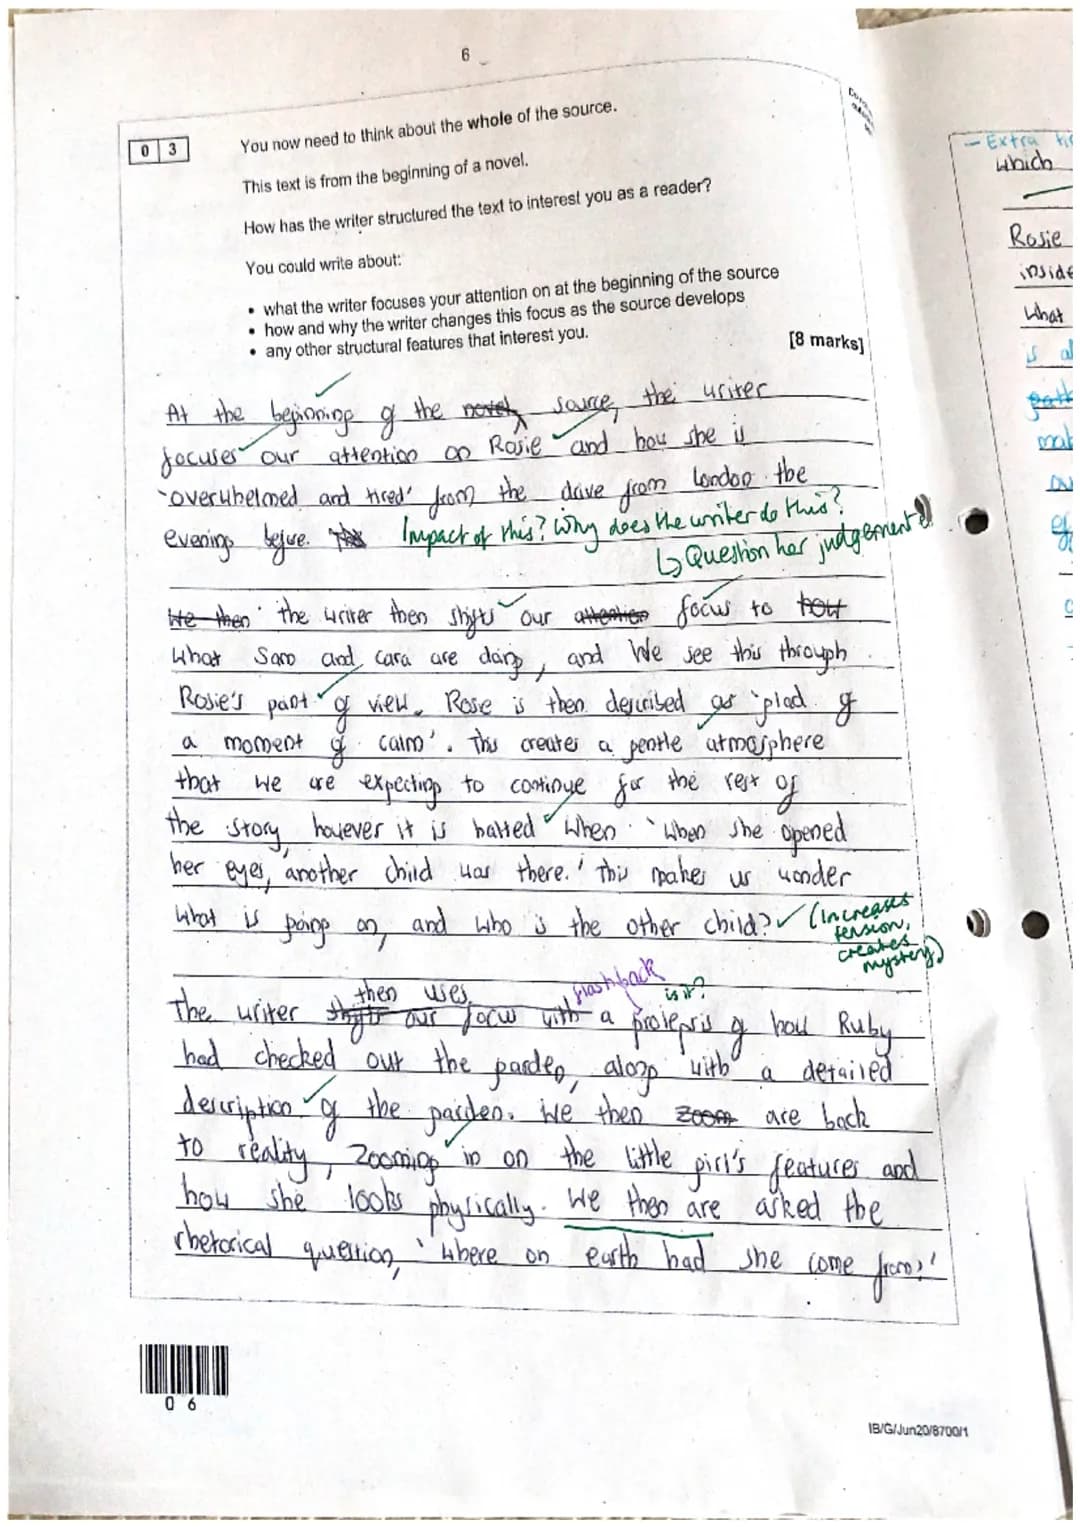 6
0 3
You now need to think about the whole of the source.
This text is from the beginning of a novel.
How has the writer structured the text to interest you as a reader?
You could write about:
• what the writer focuses your attention on at the beginning of the source
• how and why the writer changes this focus as the source develops
• any other structural features that interest you.
[8 marks]
At the beginning of the novel source, the writer
focuses our attention on Rosie and how she is
'overwhelmed and tired' from the drive from London the
evening before. The
Impact of this? Why does the writer do this?
↳ Question her judgement
We then the writer then shifts our attention focus to how
what Sam and Cara are doing, and we see this through
Rosie's point of view. Rose is then described as 'glad of
a moment of calm'. This creates a gentle atmosphere
that we are expecting to continue for the rest of
the story, however it is halted when 'when she opened
her eyes, another child was there.' This makes us wonder
what is going on, and who is the other child?
(Increases
tension,
creates
mystery)
flashback
is it?
then uses
The writer shifts our focus with a prolepsis of how Ruby
had checked out the garden, along with a detailed
description of the garden. We then zoom are back
to reality, zooming in on the little girl's features and
how she looks physically. We then are asked the
rhetorical question, 'where on earth had she come from?'
0 6
IB/G/Jun20/8700/1
- Extra
which
Rosie
inside
What
is